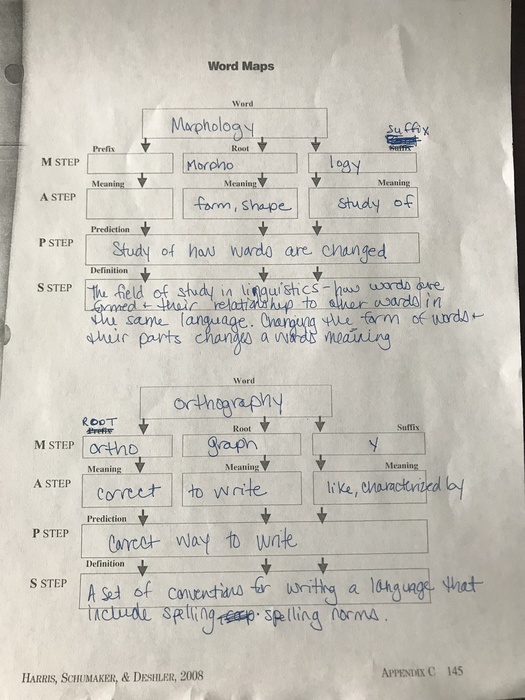 Word Maps
Word
Morphology
suffix
Suffix
Prefix Root
M STEP Morpho logy
Meaning Meaning Meaning
A STEP form, shape study of
Prediction
P STEP Study of how words are changed
Definition
S STEP The field of study in linguistics - how words are
formed + their relationship to other words in
the same language. Changing the form of words +
their parts changes a words meaning
Word
orthography
ROOT
Prefix Root Suffix
M STEP ortho graph y
Meaning Meaning Meaning
A STEP correct to write like, characterized by
Prediction
P STEP Correct way to write
Definition
S STEP A set of conventions for writing a language that
include spelling, spelling norms.
HARRIS, SCHUMAKER, & DESHLER, 2008 APPENDIX C 145